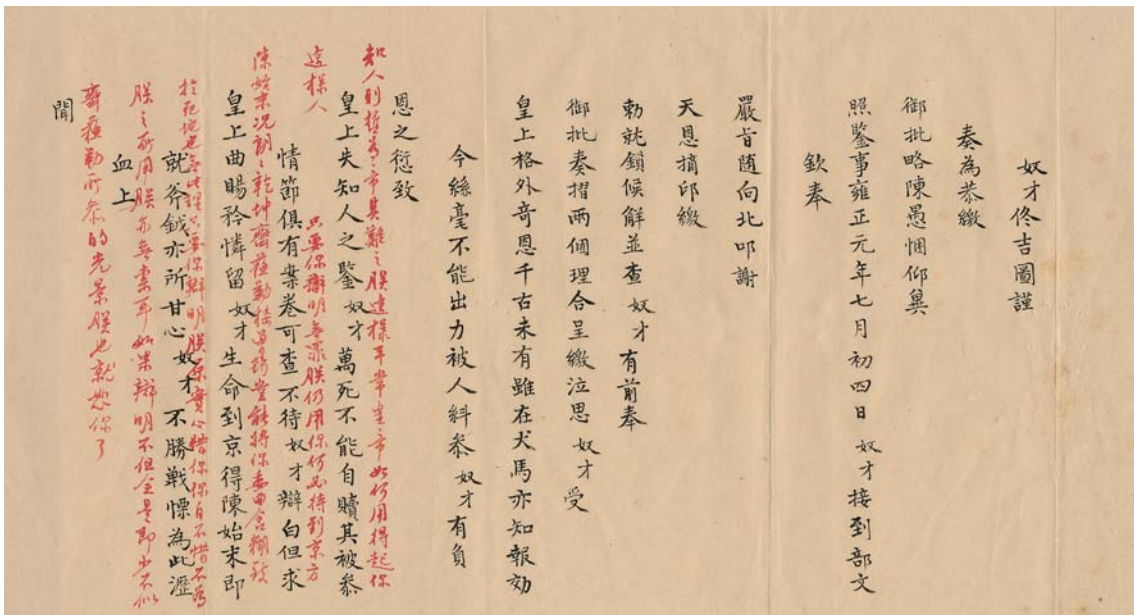 奴才佟吉圖謹
奏為恭繳
御批略陳愚悃仰冀
照鑒事雍正元年七月初四日奴才接到部文
欽奉
嚴旨隨向北叩謝
天恩摘印繳
勅就鎖候解並查奴才有前奉
御批奏摺兩個理合呈繳泣思奴才受
皇上格外奇恩千古未有雖在犬馬亦知報効
今絲毫不能出力被人糾參奴才有負
恩之愆致
知人則哲為帝其難之朕這樣平常皇帝如何用得起你
皇上失知人之鑒奴才萬死不能自贖其被參
這樣人 只要你辯明無罪朕仍用你何必待到京方
情節俱有案卷可查不待奴才辯白但求
陳始末況朗々乾坤齊蘇勒豈能將你委曲含糊致
皇上曲賜矜憐留奴才生命到京得陳始末即
於死地也無此理只要你辯明朕原實心惜你你自不惜不為
就斧鉞亦所甘心奴才不勝戰慄為此瀝
朕之所用朕亦無奈耳如果辯明不但全是即少不似
血上
齊蘇勒所參的光景朕也就恕你了
聞